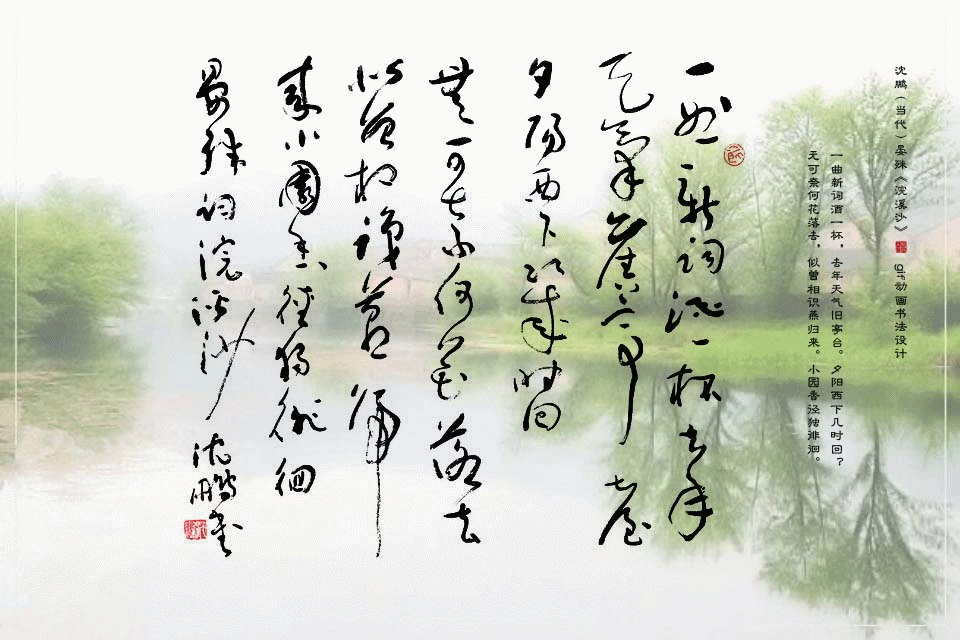 沈鹏（当代）晏殊《浣溪沙》 gif动画书法设计
一曲新词酒一杯，去年天气旧亭台。夕阳西下几时回？
无可奈何花落去，似曾相识燕归来。小园香径独徘徊。
一曲新詞酒一杯去年
天氣舊亭臺
夕陽西下幾時回
無可奈何花落去
似曾相識燕歸
來小園香徑獨徘徊
晏殊詞浣溪沙 沈鵬書